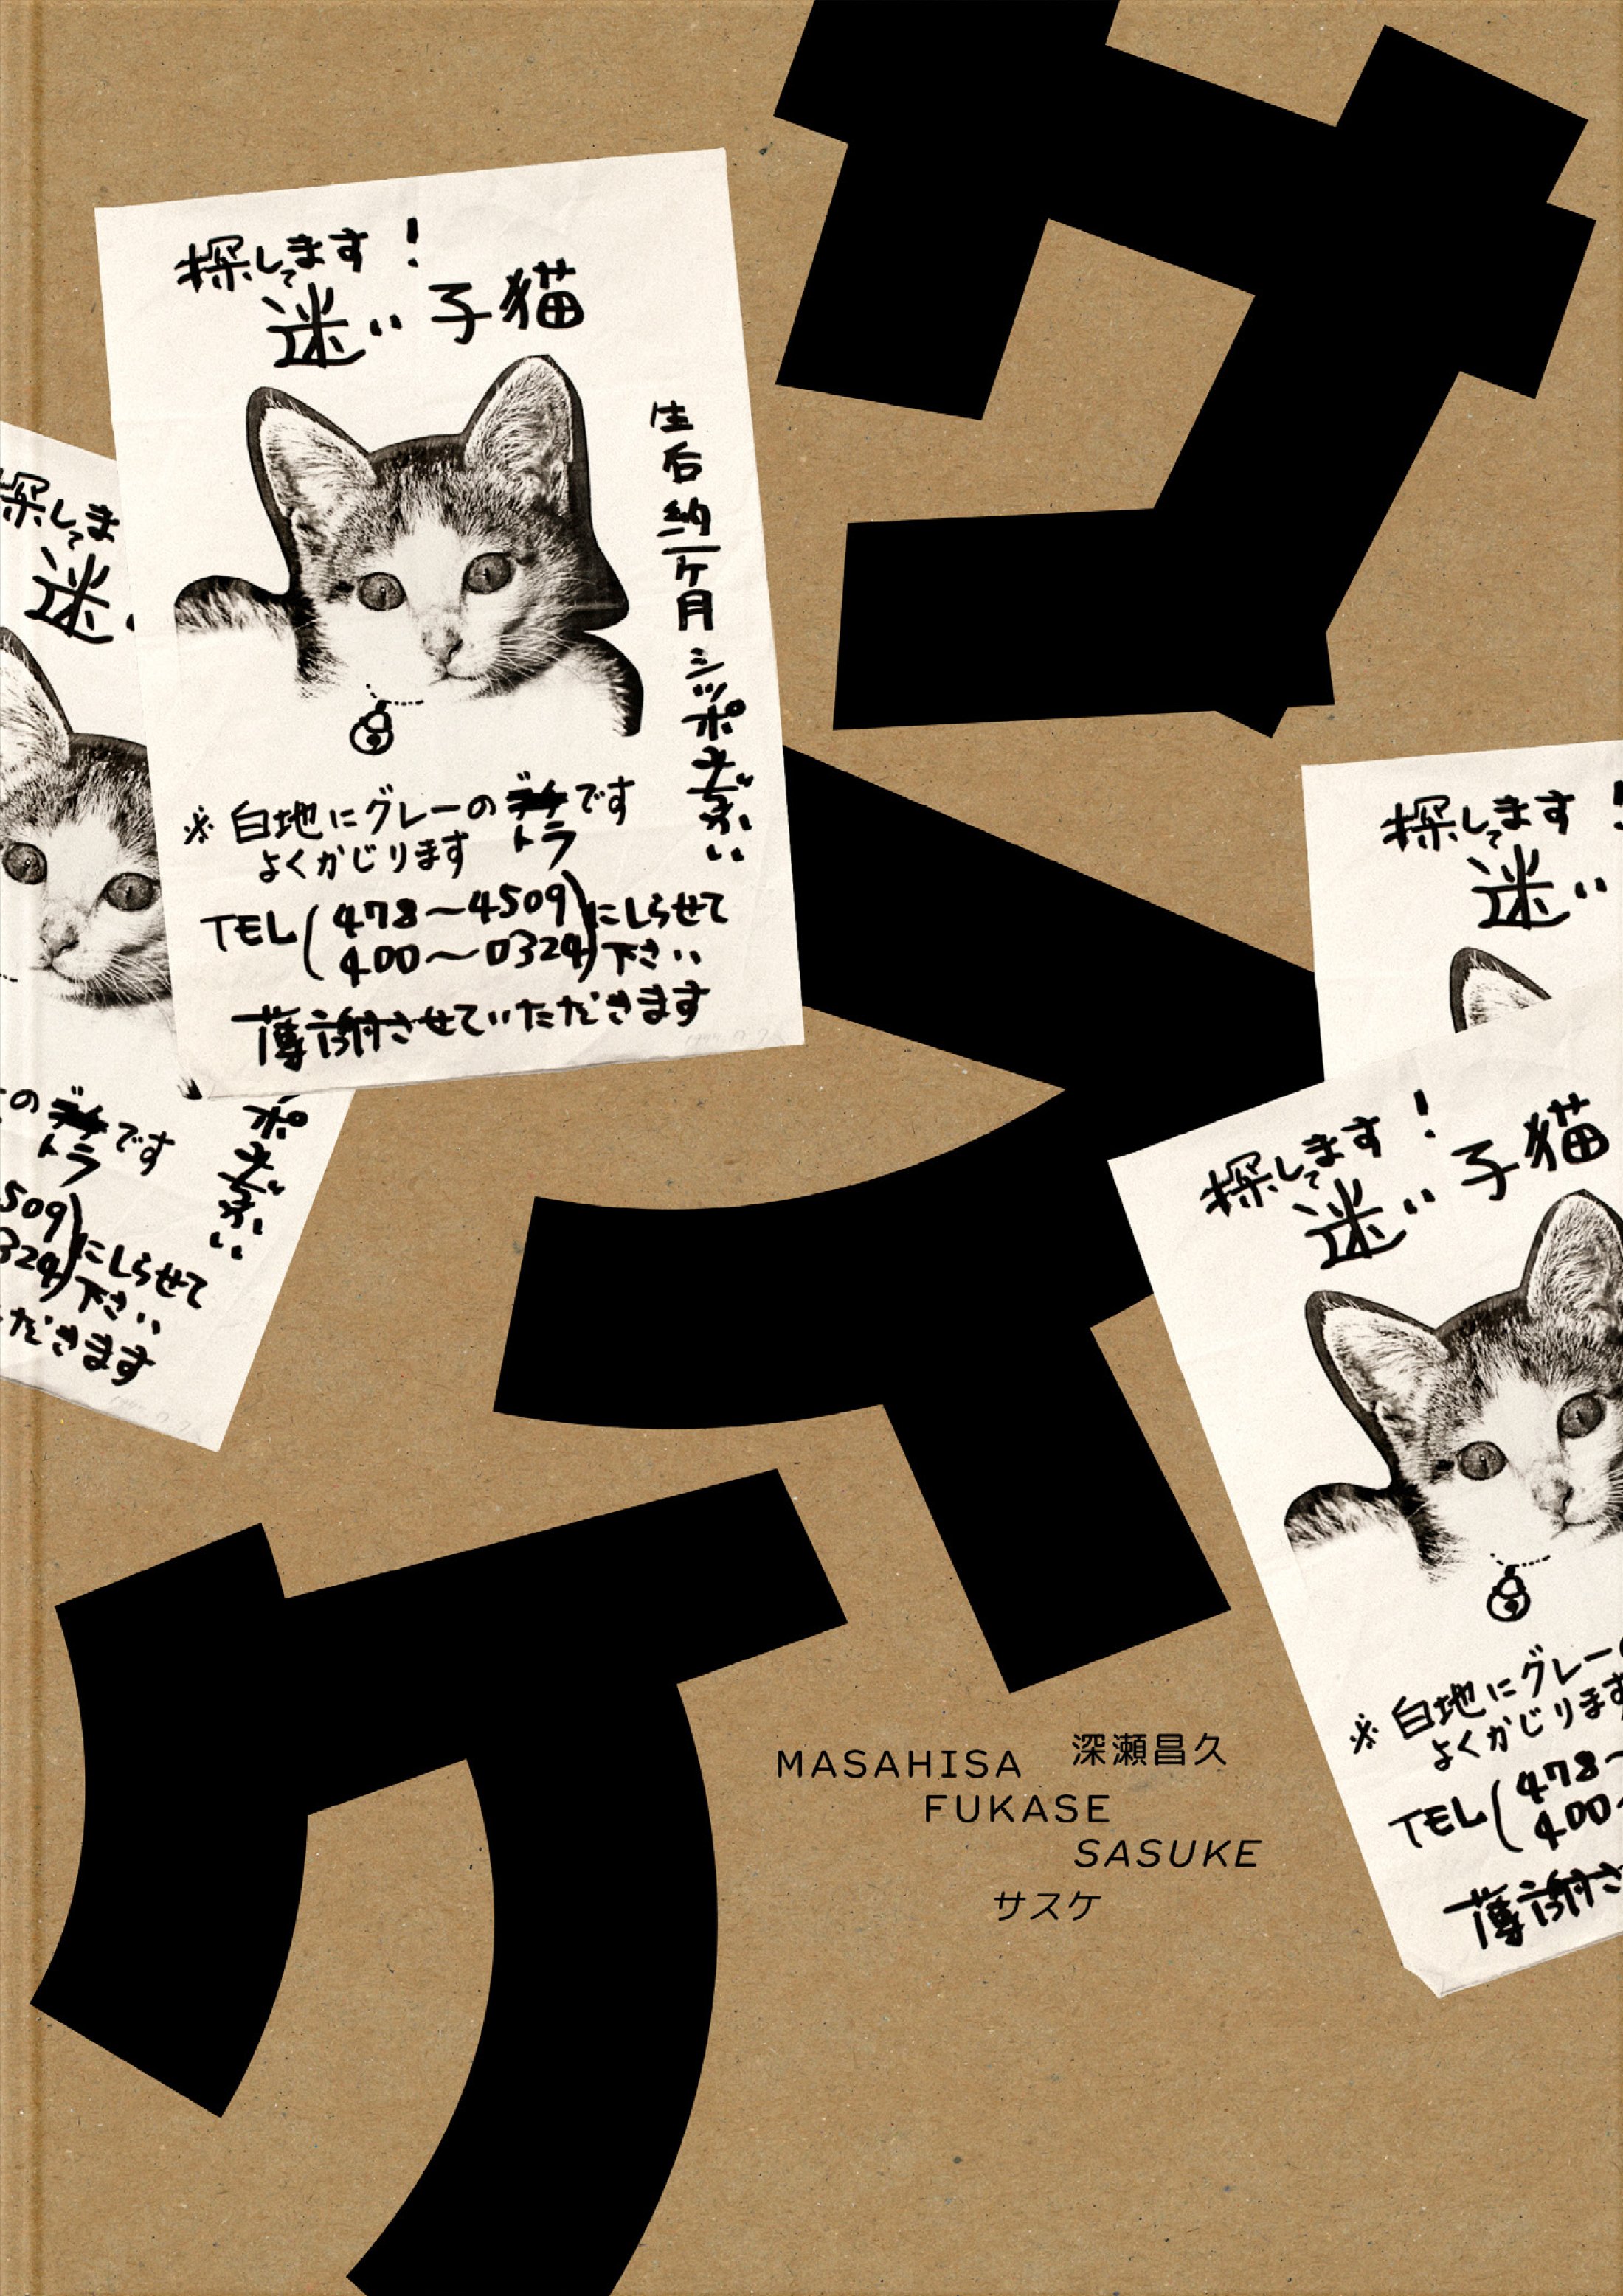 サスケ
探してます！
迷い子猫
生后約一ケ月シッポみぢかい
※白地にグレーのブチです
トラ
よくかじります
TEL(478〜4509
400〜0324)にしらせて
下さい
薄謝させていただきます
探してま
迷い
の ブチ です
トラ
ポみぢかい
509)にしらせて
324)下さい
ただきます
探してます！
迷い
探してます！
迷い子猫
※白地にグレーの
よくかじります
TEL(478〜
400〜
薄謝さ
MASAHISA 深瀬昌久
FUKASE
SASUKE
サスケ